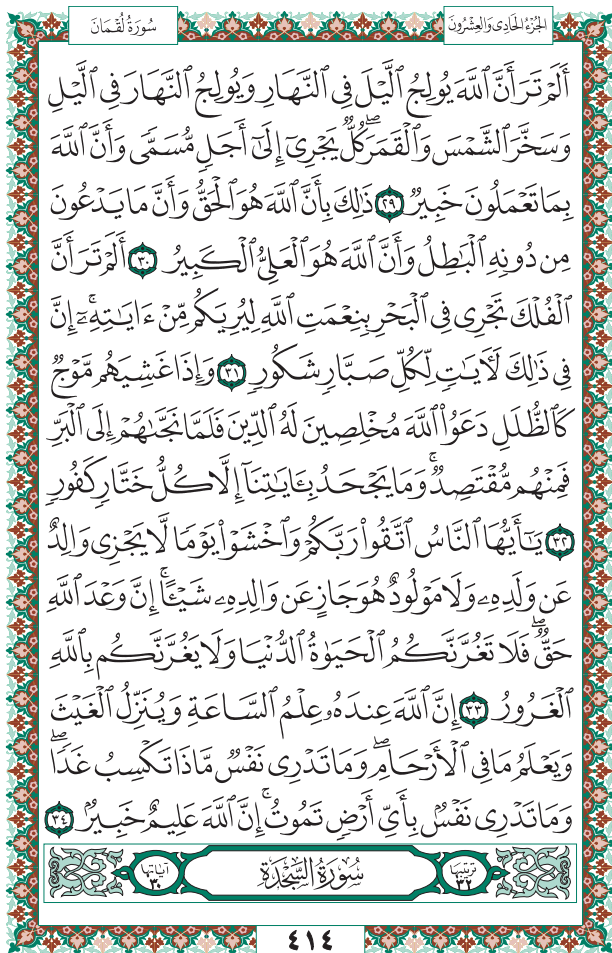 الجُزْءُ الحَادِى وَالعِشْرُونَ
سُورَةُ لُقْمَان
أَلَمْ تَرَ أَنَّ ٱللَّهَ يُولِجُ ٱلَّيْلَ فِى ٱلنَّهَارِ وَيُولِجُ ٱلنَّهَارَ فِى ٱلَّيْلِ
وَسَخَّرَ ٱلشَّمْسَ وَٱلْقَمَرَۖ كُلٌّ يَجْرِىٓ إِلَىٰٓ أَجَلٍ مُّسَمًّى وَأَنَّ ٱللَّهَ
بِمَا تَعْمَلُونَ خَبِيرٌ ٢٩ ذَٰلِكَ بِأَنَّ ٱللَّهَ هُوَ ٱلْحَقُّ وَأَنَّ مَا يَدْعُونَ
مِن دُونِهِ ٱلْبَٰطِلُ وَأَنَّ ٱللَّهَ هُوَ ٱلْعَلِىُّ ٱلْكَبِيرُ ٣٠ أَلَمْ تَرَ أَنَّ
ٱلْفُلْكَ تَجْرِى فِى ٱلْبَحْرِ بِنِعْمَتِ ٱللَّهِ لِيُرِيَكُم مِّنْ ءَايَٰتِهِۦٓۚ إِنَّ
فِى ذَٰلِكَ لَءَايَٰتٍ لِّكُلِّ صَبَّارٍ شَكُورٍ ٣١ وَإِذَا غَشِيَهُم مَّوْجٌ
كَٱلظُّلَلِ دَعَوُا۟ ٱللَّهَ مُخْلِصِينَ لَهُ ٱلدِّينَ فَلَمَّا نَجَّىٰهُمْ إِلَى ٱلْبَرِّ
فَمِنْهُم مُّقْتَصِدٌۚ وَمَا يَجْحَدُ بِـَٔايَٰتِنَآ إِلَّا كُلُّ خَتَّارٍ كَفُورٍ
٣٢ يَٰٓأَيُّهَا ٱلنَّاسُ ٱتَّقُوا۟ رَبَّكُمْ وَٱخْشَوْا۟ يَوْمًا لَّا يَجْزِى وَالِدٌ
عَن وَلَدِهِۦ وَلَا مَوْلُودٌ هُوَ جَازٍ عَن وَالِدِهِۦ شَيْـًٔاۚ إِنَّ وَعْدَ ٱللَّهِ
حَقٌّۖ فَلَا تَغُرَّنَّكُمُ ٱلْحَيَوٰةُ ٱلدُّنْيَا وَلَا يَغُرَّنَّكُم بِٱللَّهِ
ٱلْغَرُورُ ٣٣ إِنَّ ٱللَّهَ عِندَهُۥ عِلْمُ ٱلسَّاعَةِ وَيُنَزِّلُ ٱلْغَيْثَ
وَيَعْلَمُ مَا فِى ٱلْأَرْحَامِۖ وَمَا تَدْرِى نَفْسٌ مَّاذَا تَكْسِبُ غَدًاۖ
وَمَا تَدْرِى نَفْسٌۢ بِأَىِّ أَرْضٍ تَمُوتُۚ إِنَّ ٱللَّهَ عَلِيمٌ خَبِيرٌۢ ٣٤
ترتيبها ٣٢
سُورَةُ السَّجْدَةِ
آياتها ٣٠
٤١٤